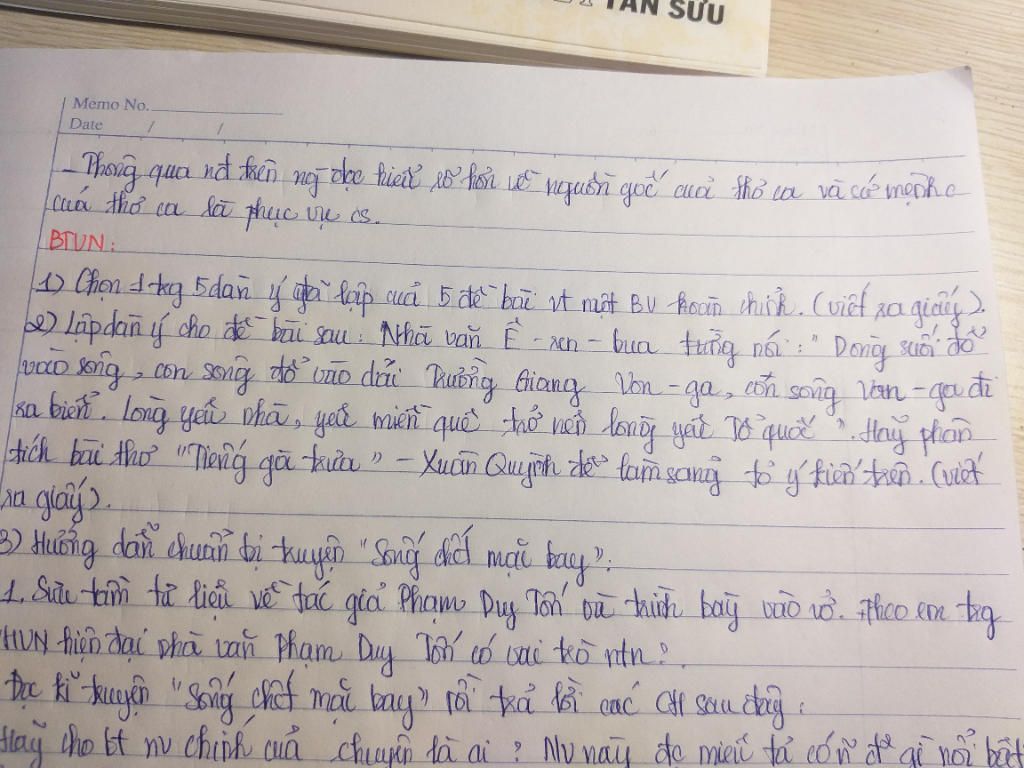 TÂN SỬU
Memo No.
Date / /
- Thông qua nđ trên ng đọc hiểu rõ hơn về nguồn gốc cuả thơ ca và sứ mệnh c
cuả thơ ca là phục vụ cs.
BTVN:
1) Chọn 1 trg 5 dàn ý đã lập cuả 5 đề bài vt một BV hoàn chỉnh. (viết ra giấy).
2) Lập dàn ý cho đề bài sau: Nhà văn Ê-ren-bua từng nói: "Dòng suối đổ
vào sông, con sông đổ vào dải Trường Giang Von-ga, con sông Von-ga đi
ra biển. Lòng yêu nhà, yêu miền quê trở nên lòng yêu Tổ quốc". Hãy phân
tích bài thơ "Tiếng gà trưa" - Xuân Quỳnh để làm sáng tỏ ý kiến trên. (viết
ra giấy).
3) Hướng dẫn chuẩn bị truyện "Sống chết mặc bay":
1. Sưu tầm tư liệu về tác giả Phạm Duy Tốn và trình bày vào vở. Theo em trg
HVN hiện đại nhà văn Phạm Duy Tốn có vai trò ntn?
Đọc kĩ truyện "Sống chết mặc bay" rồi trả lời các CH sau đây:
Hãy cho bt nv chính cuả chuyện là ai? NV này đc miêu tả có đ gì nổi bật